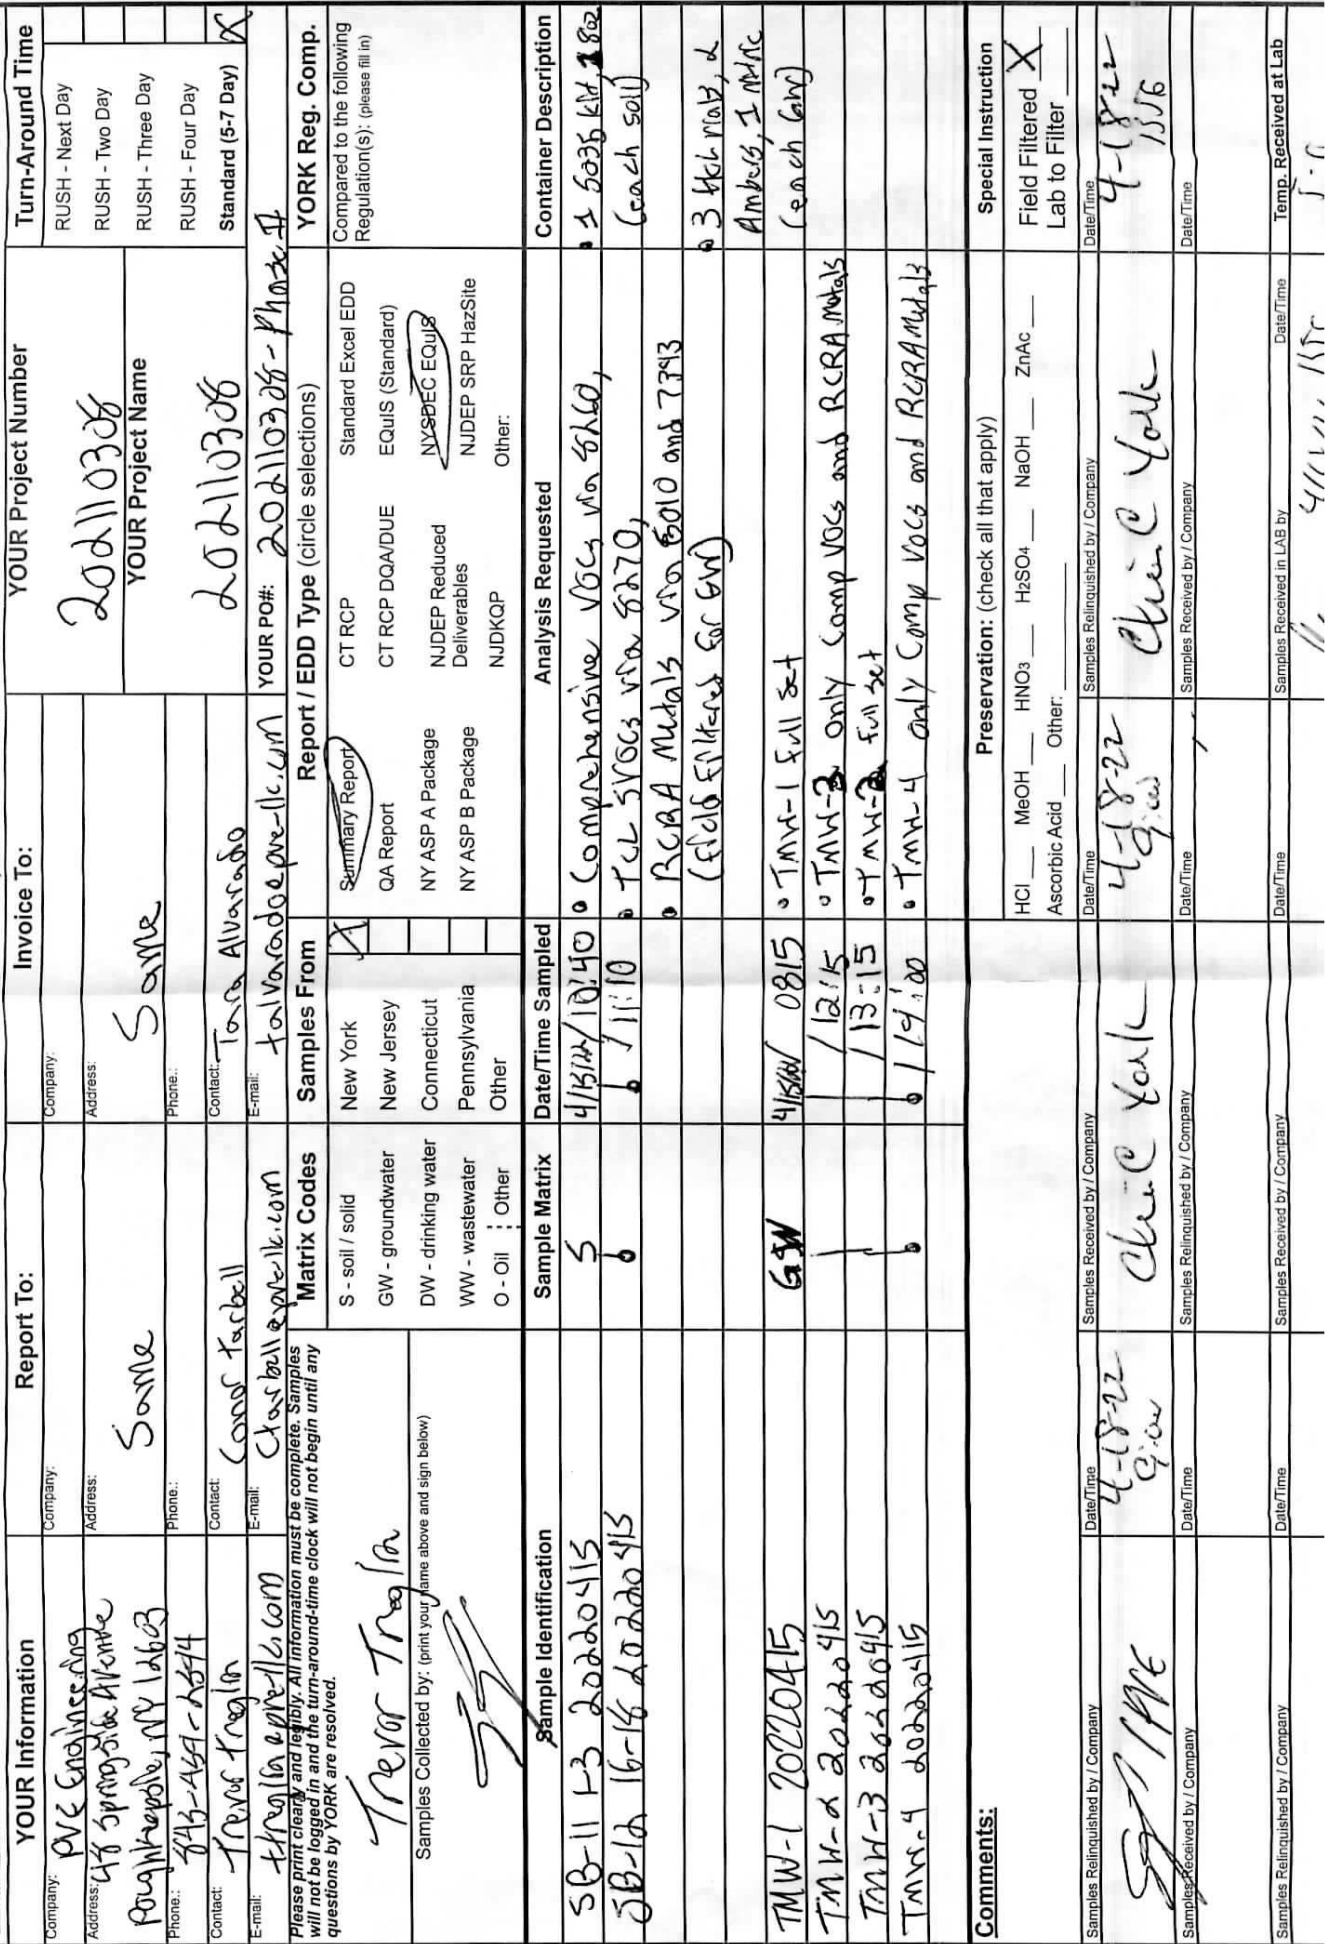 YOUR Information
Company: PVE Engineering
Address: 48 Springside Avenue
Poughkeepsie, NY 12603
Phone.: 845-454-2544
Contact: Trevor Treglia
E-mail:
Report To:
Company:
Address: Same
Phone.:
Contact: Conor Tarbell
E-mail: Ctarbell@pve-llc.com
Invoice To:
Company:
Address: Same
Phone.:
Contact: Tara Alvarado
E-mail: talvarado@pve-llc.com
YOUR Project Number
202110308
YOUR Project Name
202110308
YOUR PO#: 202110308 - Phase II
Turn-Around Time
RUSH - Next Day
RUSH - Two Day
RUSH - Three Day
RUSH - Four Day
Standard (5-7 Day) X
Please print clearly and legibly. All information must be complete. Samples
will not be logged in and the turn-around-time clock will not begin until any
questions by YORK are resolved.
Trevor Treglia
Samples Collected by: (print your name above and sign below)
Matrix Codes
S - soil / solid
GW - groundwater
DW - drinking water
WW - wastewater
O - Oil Other
Samples From
New York X
New Jersey
Connecticut
Pennsylvania
Other
Report / EDD Type (circle selections)
Summary Report CT RCP Standard Excel EDD
QA Report CT RCP DQA/DUE EQuIS (Standard)
NY ASP A Package NJDEP Reduced Deliverables NYSDEC EQuIS
NY ASP B Package NJDKQP NJDEP SRP HazSite
Other:
YORK Reg. Comp.
Compared to the following
Regulation(s): (please fill in)
Sample Identification Sample Matrix Date/Time Sampled Analysis Requested Container Description
SB-11 1-3 20220415 S 4/15/22/10:40 • Comprehensive VOCs via 8260, • 1 5035 kit, 1 8oz
SB-12 16-18 20220415 / 11:10 • TCL SVOCs via 8270, (each soil)
• RCRA Metals via 6010 and 7343
(field filtered for GW) • 3 Hcl vials, 2
Ambers, 1
TMW-1 20220415 GW 0815 • TMW-1 full set (each GW)
TMW-2 20220415 / 1215 • TMW-3 only Comp VOCs and RCRA Metals
TMW-3 20220415 / 13:15 • TMW-2 full set
TMW-4 20220415 / 14:00 • TMW-4 only Comp VOCs and RCRA Metals
Comments:
Preservation: (check all that apply)
HCl MeOH HNO3 H2SO4 NaOH ZnAc
Ascorbic Acid Other:
Special Instruction
Field Filtered X
Lab to Filter
Samples Relinquished by / Company Date/Time Samples Received by / Company Date/Time Samples Relinquished by / Company Date/Time
PVE 4-18-22 York 4-18-22 York 4-18-22
Samples Received by / Company Date/Time Samples Relinquished by / Company Date/Time Samples Received by / Company Date/Time
Samples Relinquished by / Company Date/Time Samples Received by / Company Date/Time Samples Received in LAB by Date/Time Temp. Received at Lab